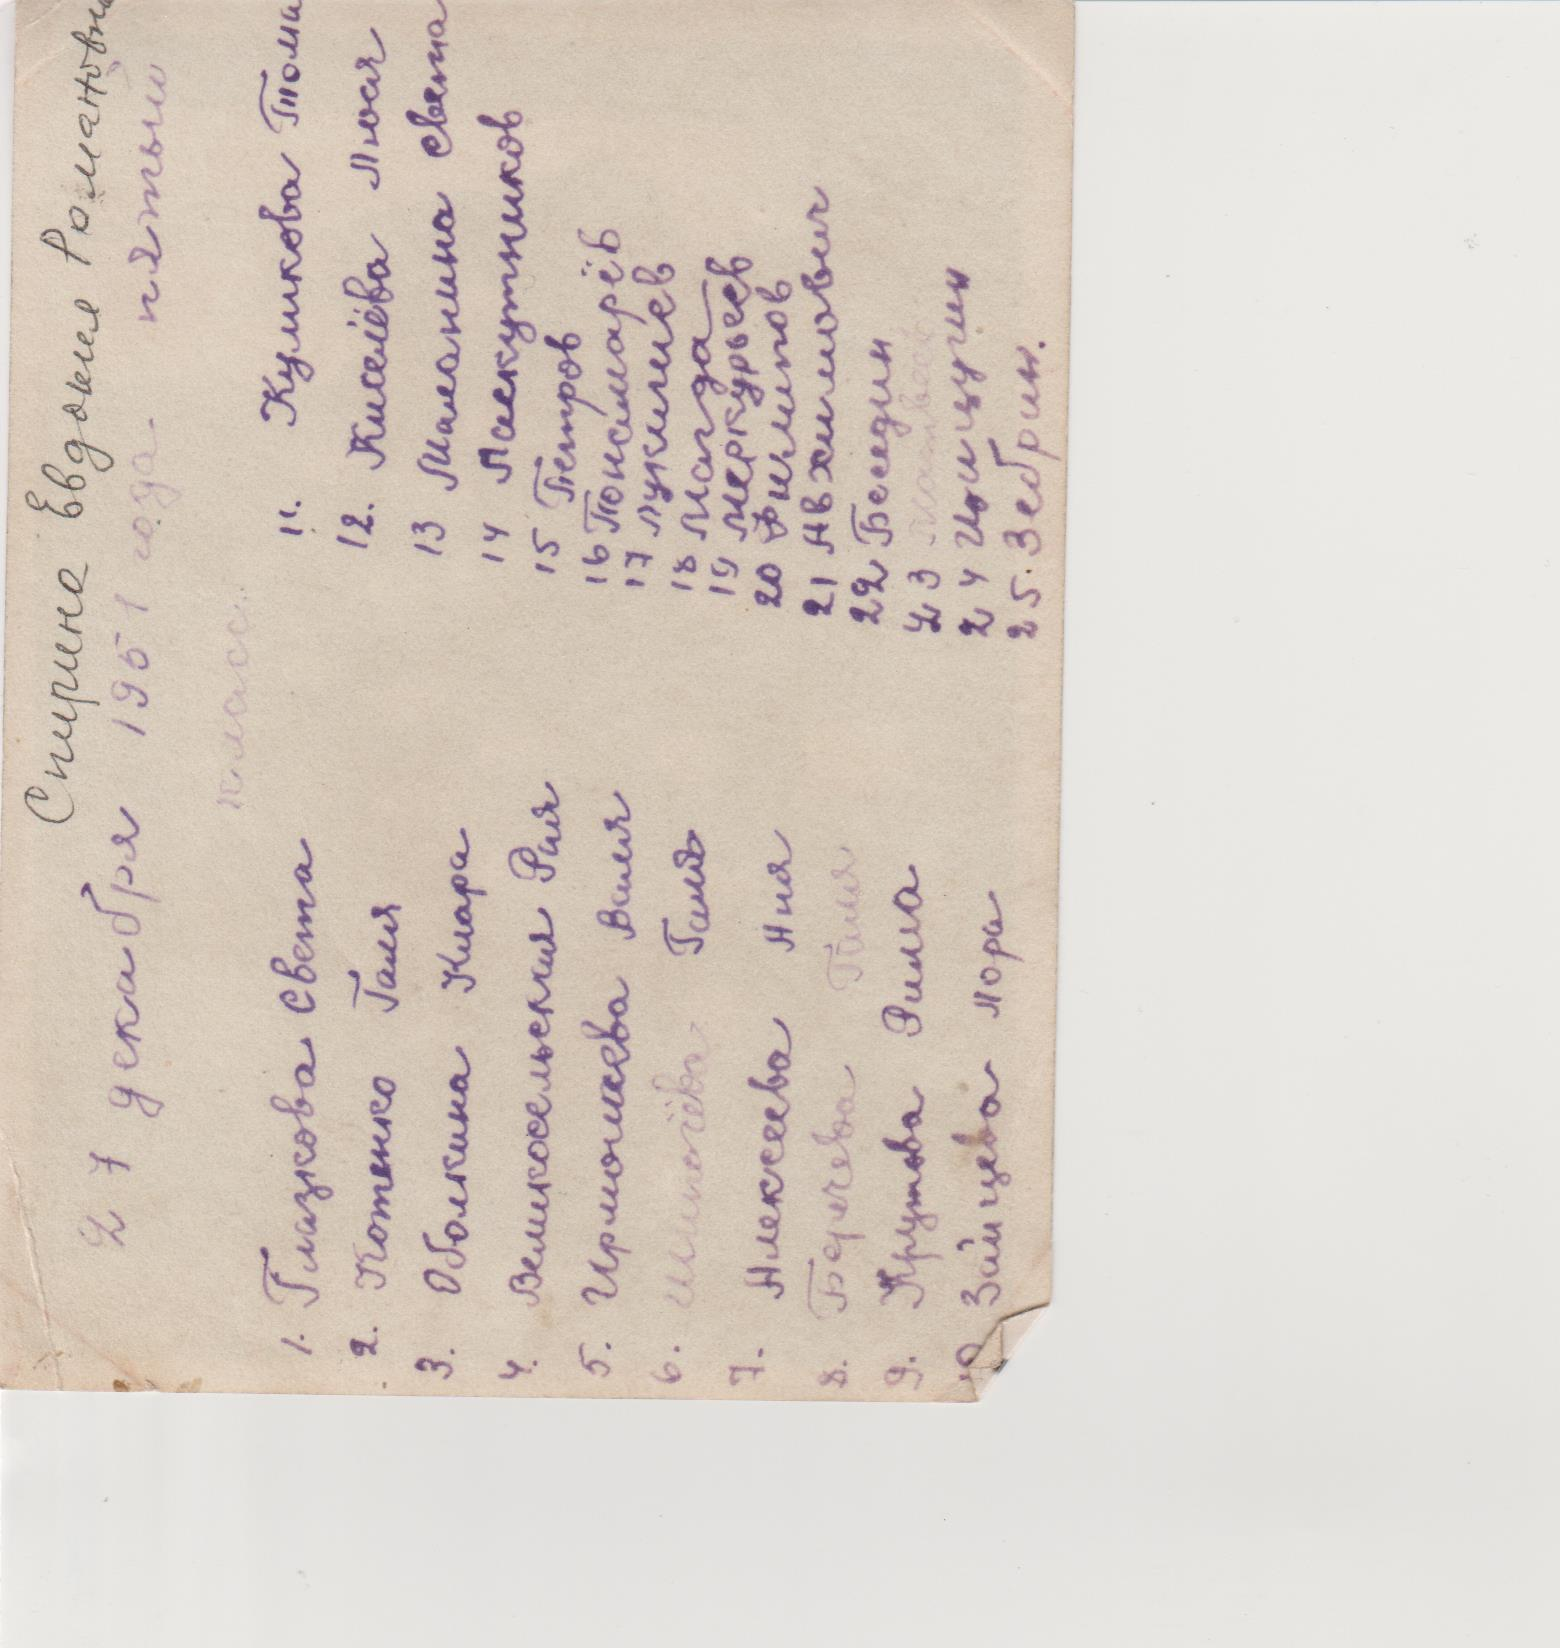 Спирина Евдокея Романовна
27 декабря 1951 года. пятый
класс.
1. Глазкова Света
2. Котенко Галя
3. Оболкина Клара
4. Великосельская Рая
5. Ирмошева Валя
6. Галя
7. Алексеева Аня
8. Галя
9. Крутова Римма
10 Зайцева Лора
11. Куликова Тома
12. Киселёва Люся
13 Маланина Света
14 Лоскутников
15 Петров
16 Пономарёв
17 Лукишев
18 Магда
19 Меркурьев
20 Филипов
21 Авхимович
22 Беседин
23
24
25. Зебрин.